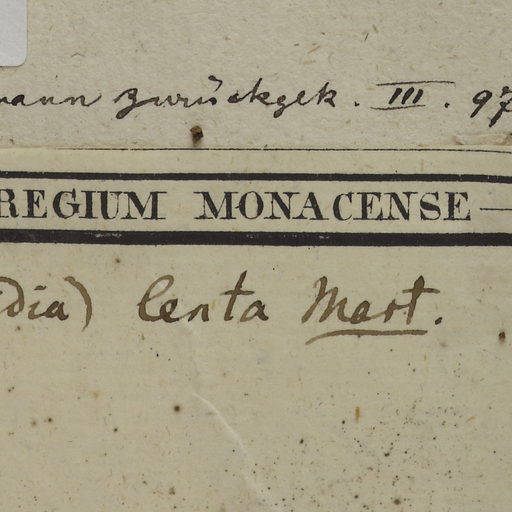 mann zurückgek. III. 97
REGIUM MONACENSE —
dia) lenta Mart.